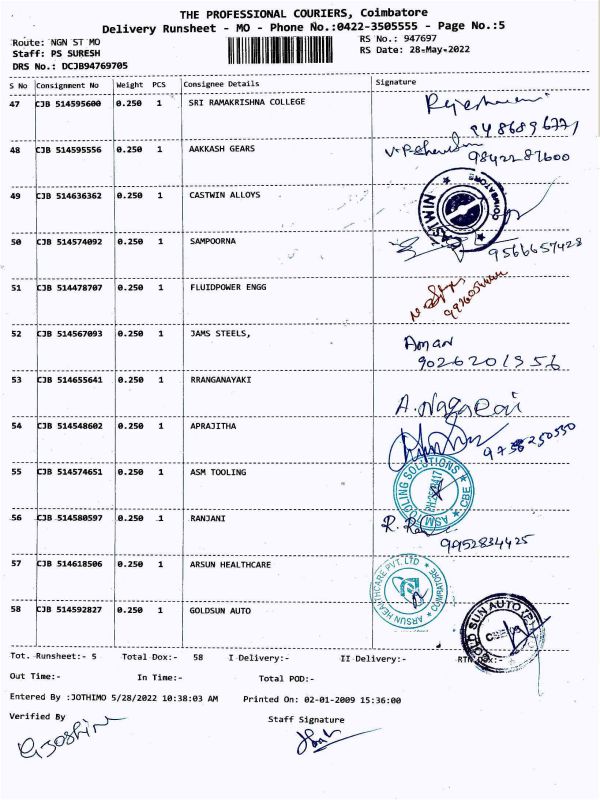 THE PROFESSIONAL COURIERS, Coimbatore
Delivery Runsheet - MO - Phone No.:0422-3505555 - Page No.:5
Route: NGN ST MO
RS No.: 947697
Staff: PS SURESH
RS Date: 28-May-2022
DRS No.: DCJB94769705
S No Consignment No Weight PCS Consignee Details Signature
47 CJB 514595600 0.250 1 SRI RAMAKRISHNA COLLEGE
8486896771
48 CJB 514595556 0.250 1 AAKKASH GEARS
9842287600
49 CJB 514636362 0.250 1 CASTWIN ALLOYS
COIMBATORE
50 CJB 514574092 0.250 1 SAMPOORNA
9566657428
51 CJB 514478707 0.250 1 FLUIDPOWER ENGG
52 CJB 514567093 0.250 1 JAMS STEELS, Aman
9026201356
53 CJB 514655641 0.250 1 RRANGANAYAKI
A. Nagaraj
54 CJB 514548602 0.250 1 APRAJITHA
55 CJB 514574651 0.250 1 ASM TOOLING
ASM TOOLING SOLUTIONS ★ CBE ★
56 CJB 514580597 0.250 1 RANJANI
9952834425
57 CJB 514618506 0.250 1 ARSUN HEALTHCARE
ARSUN HEALTHCARE PVT. LTD ★ COIMBATORE ★
58 CJB 514592827 0.250 1 GOLDSUN AUTO
GOLD SUN AUTO (P)
Tot. Runsheet:- 5 Total Dox:- 58 I Delivery:- II Delivery:- RTN Dox:-
Out Time:- In Time:- Total POD:-
Entered By :JOTHIMO 5/28/2022 10:38:03 AM Printed On: 02-01-2009 15:36:00
Verified By Staff Signature